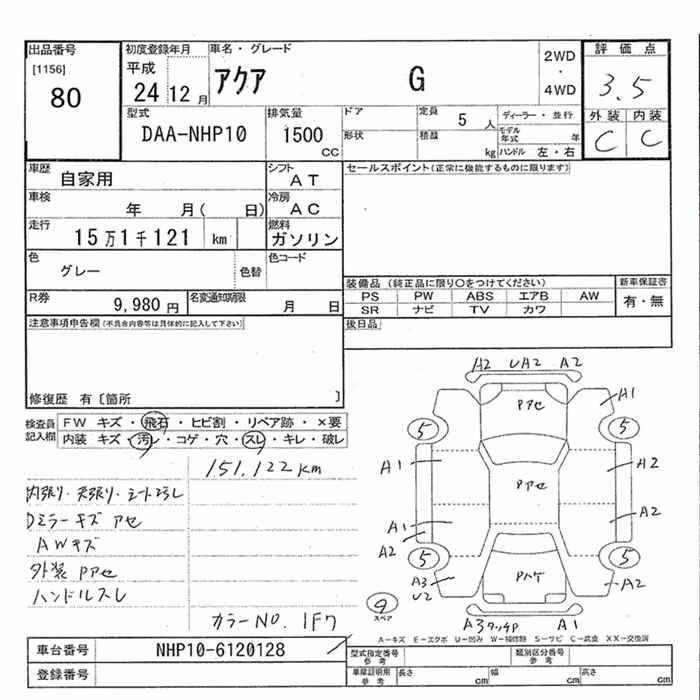 出品番号
[1156]
80
初度登録年月
平成
24 12 月
車名・グレード
アクア G
2WD
・
4WD
評価点
3.5
外装 内装
C C
型式
DAA-NHP10
排気量
1500
CC
ドア
形状
定員
5 人
積載
kg
ディーラー・並行
モデル年式 年
ハンドル 左・右
車歴
自家用
シフト
AT
セールスポイント(正常に機能するものに限ります)
車検
年 月( 日)
冷房
AC
走行
15万1千121 km
燃料
ガソリン
色
グレー
色替
色コード
装備品 (純正品に限り○をつけてください)
PS PW ABS エアB AW
SR ナビ TV カワ
新車保証書
有・無
R券
9,980 円
名変通知期限
月 日
後日品
注意事項申告欄(不具合内容等は具体的に記入して下さい)
修復歴 有〔箇所 〕
検査員記入欄
FW キズ・飛石・ヒビ割・リペア跡・×要
内装 キズ・汚レ・コゲ・穴・スレ・キレ・破レ
151,122km
内張り・天張り・シート汚レ
Dミラーキズ アセ
AWキズ
外装Pアセ
ハンドルスレ
カラーNO. 1F7
A2 UA2 A2
Pアセ
A1
5
5
A1
A2
Pアセ
A1
A2
A2
5
5
A3
U2
Pハゲ
A2
9
スペア
A3タッチP
A1
A−キズ E−エクボ U−凹み W−補修跡 S−サビ C−腐食 XX−交換済
車台番号
NHP10-6120128
登録番号
型式指定番号
参考
類別区分番号
参考
車庫証明用
参考
長さ cm
幅 cm
高さ cm